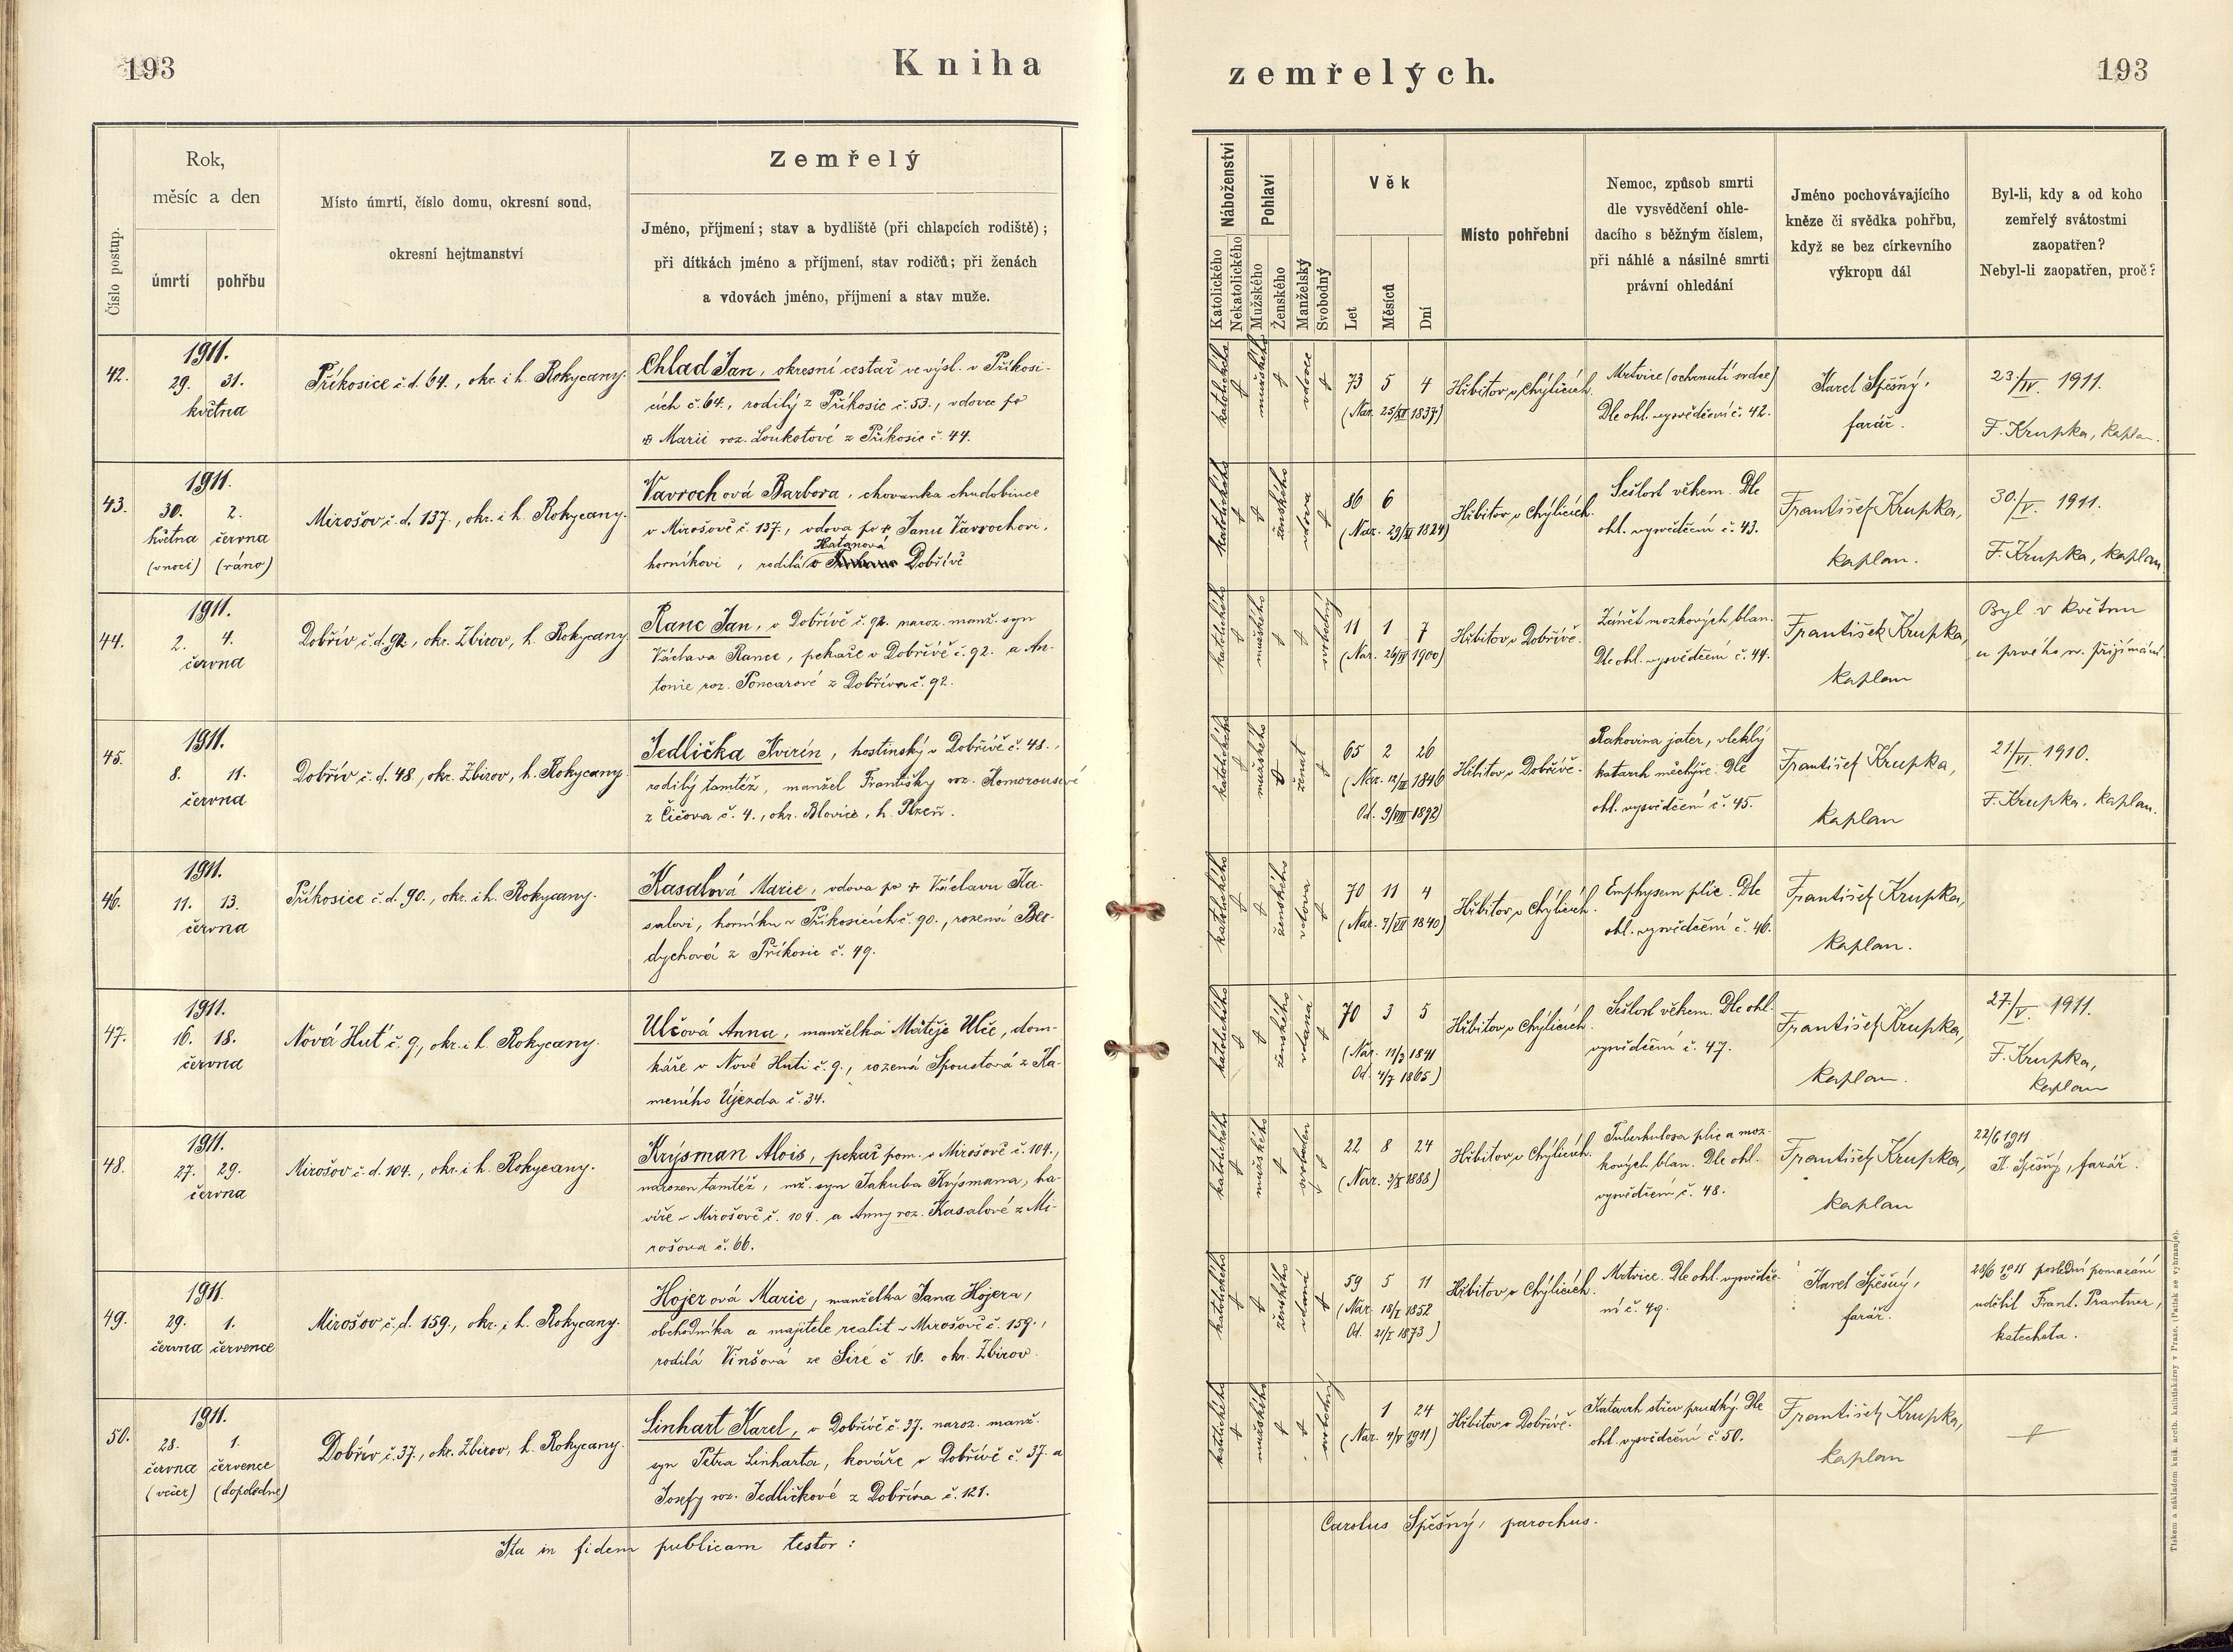 193
Kniha
zemřelých.
193
Číslo postup.
Rok,
měsíc a den
úmrtí
pohřbu
Místo úmrtí, číslo domu, okresní soud,
okresní hejtmanství
Zemřelý
Jméno, příjmení; stav a bydliště (při chlapcích rodiště);
při dítkách jméno a příjmení, stav rodičů; při ženách
a vdovách jméno, příjmení a stav muže.
Náboženství
Katolického
Nekatolického
Pohlaví
Mužského
Ženského
Manželský
Svobodný
Věk
Let
Měsíců
Dní
Místo pohřební
Nemoc, způsob smrti
dle vysvědčení ohle-
dacího s běžným číslem,
při náhlé a násilné smrti
právní ohledání
Jméno pochovávajícího
kněze či svědka pohřbu,
když se bez církevního
výkropu dál
Byl-li, kdy a od koho
zemřelý svátostmi
zaopatřen?
Nebyl-li zaopatřen, proč?
42.
1911.
29. 31.
května
Příkosice č.d. 64., okr. i h. Rokycany.
Chlad Jan, okresní cestář ve výsl. v Příkosi-
cích č. 64., rodilý z Příkosic č. 53., vdovec po
Marii roz. Loukotové z Příkosic č. 44.
katolického
mužského
vdovec
73 5 4
(Nar. 25/XII 1837)
Hřbitov v Chýlicích.
Mrtvice (ochrnutí srdce)
Dle ohl. vysvědčení č. 42.
Karel Spěšný,
farář.
23./IV. 1911.
F. Krupka, kaplan.
43.
1911.
30. 2.
května června
(v noci) (ráno)
Mirošov č. d. 137., okr. i h. Rokycany.
Vavrochová Barbora, chovanka chudobince
v Mirošově č. 137., vdova po † Janu Vavrochovi,
Hatanová
horníkovi, rodilá v Dobřívě
katolického
ženského
vdova
86 6
(Nar. 29/XI 1824)
Hřbitov v Chýlicích.
Sešlost věkem. Dle
ohl. vysvědčení č. 43.
František Krupka,
kaplan.
30./V. 1911.
F. Krupka, kaplan.
44.
1911.
2. 4.
června
Dobřív č. d. 92., okr. Zbirov, h. Rokycany.
Ranc Jan, v Dobřívě č. 92. naroz. manž. syn
Václava Rance, pekaře v Dobřívě č. 92. a An-
tonie roz. Poncarové z Dobříva č. 92.
katolického
mužského
svobodný
11 1 7
(Nar. 26/IV 1900)
Hřbitov v Dobřívě.
Zánět mozkových blan.
Dle ohl. vysvědčení č. 44.
František Krupka,
kaplan
Byl v květnu
u prvého sv. přijímání.
45.
1911.
8. 11.
června
Dobřív č. d. 48., okr. Zbirov, h. Rokycany.
Jedlička Kvirin, hostinský v Dobřívě č. 48.,
rodilý tamtéž, manžel Františky roz. Komorousové
z Čičova č. 4., okr. Blovice, h. Plzeň.
katolického
mužského
ženat
65 2 26
(Nar. 12/III 1846
Od. 9/VIII 1892)
Hřbitov v Dobřívě.
Rakovina jater, vleklý
katarrh měchýře. Dle
ohl. vysvědčení č. 45.
František Krupka,
kaplan
21./VI. 1910.
F. Krupka, kaplan.
46.
1911.
11. 13.
června
Příkosice č. d. 90., okr. i h. Rokycany.
Kasalová Marie, vdova po † Václavu Ka-
salovi, horníku v Příkosicích č. 90., rozená Ble-
dychová z Příkosic č. 49.
katolického
ženského
vdova
70 11 4
(Nar. 7/VII 1840)
Hřbitov v Chýlicích.
Emphysem plic. Dle
ohl. vysvědčení č. 46.
František Krupka,
kaplan.
47.
1911.
16. 18.
června
Nová Huť č. 9., okr. i h. Rokycany.
Ulčová Anna, manželka Matěje Ulče, dom-
káře v Nové Huti č. 9., rozená Spoustová z Ka-
menného Újezda č. 34.
katolického
ženského
vdaná
70 3 5
(Nar. 11/3 1841
Od. 4/7 1865)
Hřbitov v Chýlicích.
Sešlost věkem. Dle ohl.
vysvědčení č. 47.
František Krupka,
kaplan.
27./V. 1911.
F. Krupka,
kaplan
48.
1911.
27. 29.
června
Mirošov č. d. 104., okr. i h. Rokycany.
Krýsman Alois, pekař pom. v Mirošově č. 104.,
narozen tamtéž, mž. syn Jakuba Krýsmana, ha-
víře v Mirošově č. 104. a Anny roz. Kasalové z Mi-
rošova č. 66.
katolického
mužského
svoboden
22 8 24
(Nar. 3/X 1888)
Hřbitov v Chýlicích.
Tuberkulosa plic a moz-
kových blan. Dle ohl.
vysvědčení č. 48.
František Krupka,
kaplan
22/6 1911
K. Spěšný, farář.
49.
1911.
29. 1.
června července
Mirošov, č. d. 159., okr. i h. Rokycany.
Hojerová Marie, manželka Jana Hojera,
obchodníka a majitele realit v Mirošově č. 159.,
rodilá Vinšová ze Siré č. 16. okr. Zbirov.
katolického
ženského
vdaná
59 5 11
(Nar. 18/I 1852
Od. 21/I 1873)
Hřbitov v Chýlicích.
Mrtvice. Dle ohl. vysvědče-
ní č. 49.
Karel Spěšný,
farář.
28/6 1911 poslední pomazání
udělil Frant. Prantner,
katecheta.
50.
1911.
28. 1.
června července
(večer) (dopoledne)
Dobřív č. 37., okr. Zbirov, h. Rokycany.
Linhart Karel, v Dobřívě č. 37. naroz. manž.
syn Petra Linharta, kováře v Dobřívě č. 37. a
Josefy roz. Jedličkové z Dobříva č. 121.
katolického
mužského
svobodný
1 24
(Nar. 4/V 1911)
Hřbitov v Dobřívě.
Katarrh střev prudký. Dle
ohl. vysvědčení č. 50.
František Krupka,
kaplan
Ita in fidem publicam testor:
Carolus Spěšný, parochus.
Tiskem a nákladem knih. arcib. knihtiskárny v Praze. (Patisk se vyhrazuje).